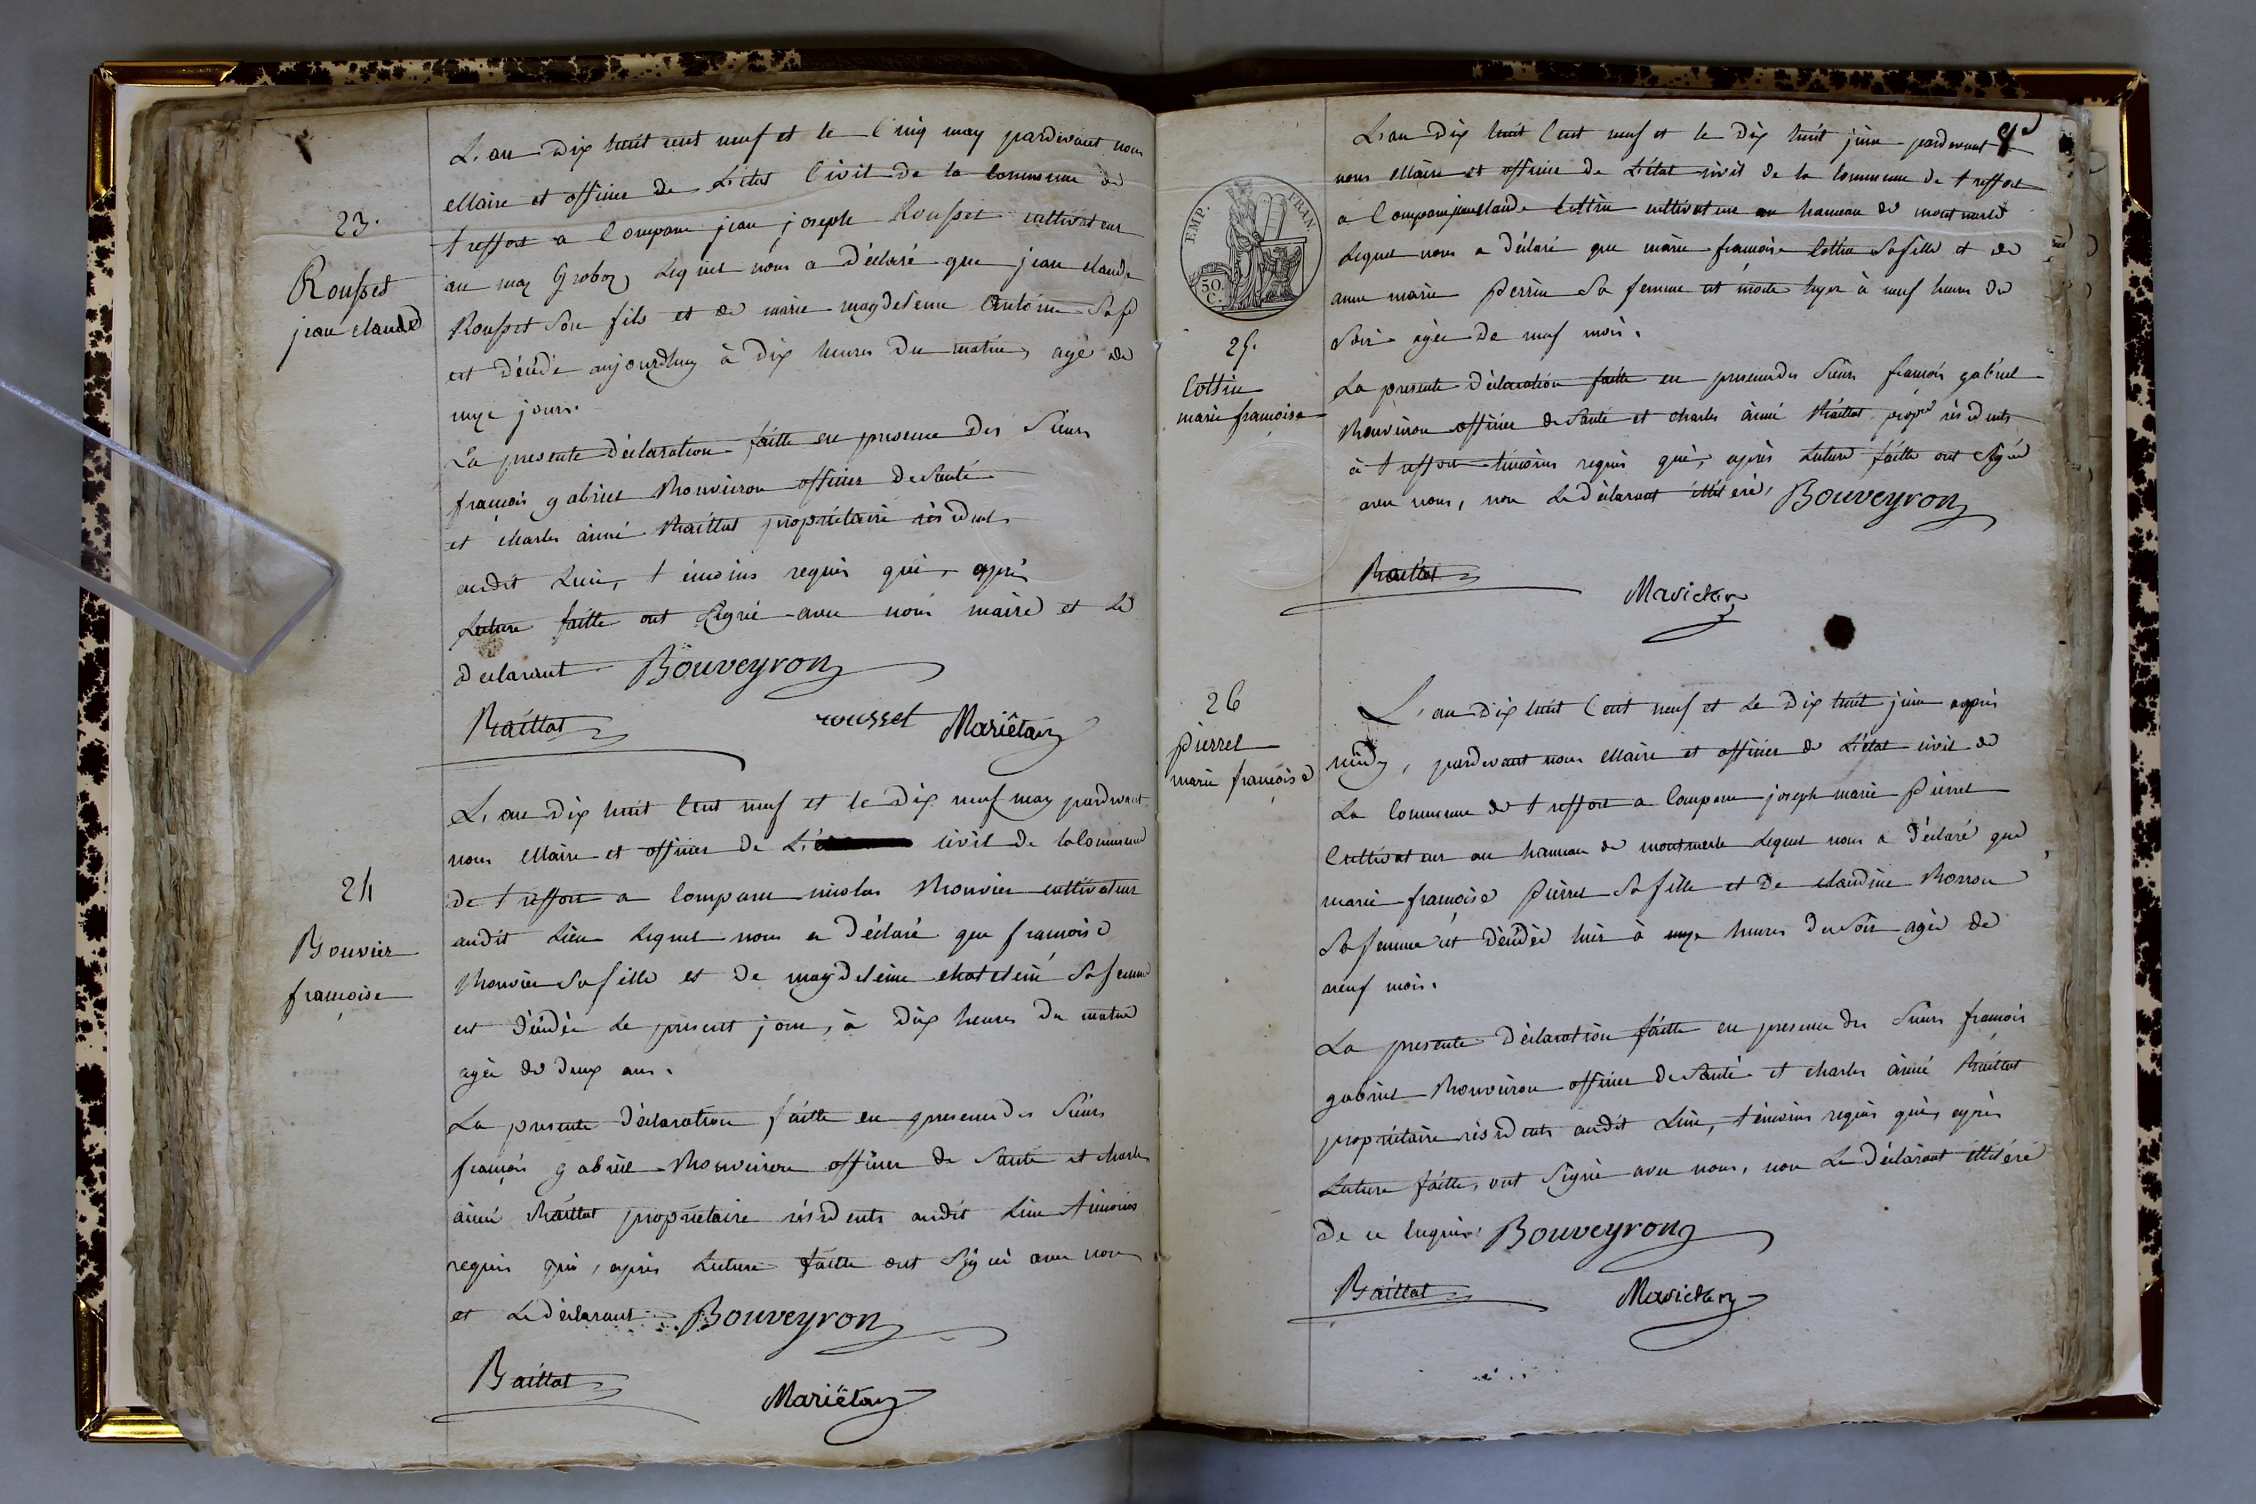 23.
Rousset
jean claude
L'an dix huit cent neuf et le Cinq may pardevant nous
Maire et officier de L'état Civil de la Commune de
treffort a Comparu jean joseph Rousset cultivateur
au Lequel nous a déclaré que jean claude
Rousset Son fils et de marie magdeleine Antoine Sa f
est décédé aujourdhuy à dix heures du matin, agé de
onze jours.
La presente déclaration faitte en presence des Sieurs
françois gabriel Bouveiron officier de Santé
et charles aimé Baillat propriétaire résidents
audit Lieu, témoins requis qui, après
Lecture faitte ont Signé avec nous maire et Le
declarant. Bouveyron
Baillat rousset Mariétan
24
Bouvier
françoise
L'an dix huit Cent neuf et le dix neuf may pardevant
nous Maire et officier de L'é civil de la Commune
de treffort a Comparu nicolas Bouvier cultivateur
audit Lieu Lequel nous a déclaré que françoise
Bouvier Sa fille et de magdeleine chatelain Sa femme
est décédée Le présent jour, à dix heures du matin
agée de deux ans.
La presente déclaration faitte en presence des Sieurs
françois gabriel Bouveiron officier de Santé et charles
aimé Baillat propriétaire résidents audit Lieu témoins
requis qui, après Lecture faitte ont Signé avec nous
et Le déclarant. Bouveyron
Baillat
Mariétan
EMP. FRAN.
50.
C.
25.
Cottin
marie françoise
L'an dix huit Cent neuf et le dix huit juin pardevant
nous Maire et officier de L'état civil de la Commune de treffort
a Comparu jean claude Cottin cultivateur au hameau de montmerle
Lequel nous a déclaré que marie françoise Cottin Sa fille et de
anne marie Perrin Sa femme est morte hyer à neuf heures du
Soir agée de neuf mois.
La presente déclaration faitte en presence des Sieurs françois gabriel
Bouveiron officier de Santé et charles aimé Baillat propre résidents
à treffort témoins requis qui, après Lecture faitte ont Signé
avec nous, non Le déclarant illitéré, Bouveyron
Baillat
Mariétan
26
Pierret
marie françoise
L'an dix huit Cent neuf et Le dix huit juin après
midy, pardevant nous Maire et officier de L'état civil de
La Commune de treffort a Comparu joseph marie Pierret
Cultivateur au hameau de montmerle Lequel nous a déclaré que
marie françoise Pierret Sa fille et de claudine Morron
Sa femme est décédée hier à onze heures du Soir agée de
neuf mois.
La presente déclaration faitte en presence des Sieurs françois
gabriel Bouveiron officier de Santé et charles aimé Baillat
propriétaire résidents audit Lieu, témoins requis qui, après
Lecture faitte, ont Signé avec nous, non Le déclarant illitéré
de ce Enquis. Bouveyron
Baillat
Mariétan